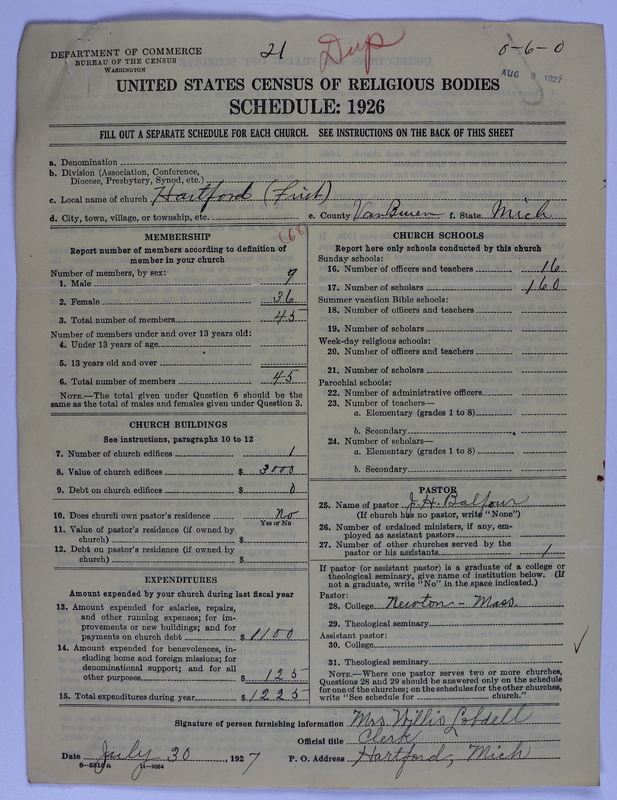 DEPARTMENT OF COMMERCE
BUREAU OF THE CENSUS
WASHINGTON
21
Dup
0-6-0
AUG 3 1927
UNITED STATES CENSUS OF RELIGIOUS BODIES
SCHEDULE: 1926
FILL OUT A SEPARATE SCHEDULE FOR EACH CHURCH. SEE INSTRUCTIONS ON THE BACK OF THIS SHEET
a. Denomination
b. Division (Association, Conference, Diocese, Presbytery, Synod, etc.)
c. Local name of church Hartford (First)
d. City, town, village, or township, etc. e. County VanBuren f. State Mich
MEMBERSHIP
(68)
Report number of members according to definition of
member in your church
Number of members, by sex:
1. Male 9
2. Female 36
3. Total number of members 45
Number of members under and over 13 years old:
4. Under 13 years of age
5. 13 years old and over
6. Total number of members 45
NOTE.—The total given under Question 6 should be
same as the total of males and females given under Question 3.
CHURCH BUILDINGS
See instructions, paragraphs 10 to 12
7. Number of church edifices 1
8. Value of church edifices $ 3000
9. Debt on church edifices $ 0
10. Does church own pastor's residence No
Yes or No
11. Value of pastor's residence (if owned by
church) $
12. Debt on pastor's residence (if owned by
church) $
EXPENDITURES
Amount expended by your church during last fiscal year
13. Amount expended for salaries, repairs,
and other running expenses; for im-
provements or new buildings; and for
payments on church debt $ 1100
14. Amount expended for benevolences, in-
cluding home and foreign missions; for
denominational support; and for all
other purposes $ 125
15. Total expenditures during year $ 1225
CHURCH SCHOOLS
Report here only schools conducted by this church
Sunday schools:
16. Number of officers and teachers 16
17. Number of scholars 160
Summer vacation Bible schools:
18. Number of officers and teachers
19. Number of scholars
Week-day religious schools:
20. Number of officers and teachers
21. Number of scholars
Parochial schools:
22. Number of administrative officers
23. Number of teachers—
a. Elementary (grades 1 to 8)
b. Secondary
24. Number of scholars—
a. Elementary (grades 1 to 8)
b. Secondary
PASTOR
25. Name of pastor J.H. Balfour
(If church has no pastor, write "None")
26. Number of ordained ministers, if any, em-
ployed as assistant pastors
27. Number of other churches served by the
pastor or his assistants 1
If pastor (or assistant pastor) is a graduate of a college or
theological seminary, give name of institution below. (If
not a graduate, write "No" in the space indicated.)
Pastor:
28. College Newton - Mass.
29. Theological seminary
Assistant pastor:
30. College
31. Theological seminary
NOTE.—Where one pastor serves two or more churches,
Questions 28 and 29 should be answered only on the schedule
for one of the churches; on the schedules for the other churches,
write "See schedule for church."
Signature of person furnishing information Mrs. Willis Lobdell
Official title Clerk
Date July 30, 1927 P. O. Address Hartford, Mich
8—5518a 11—9064